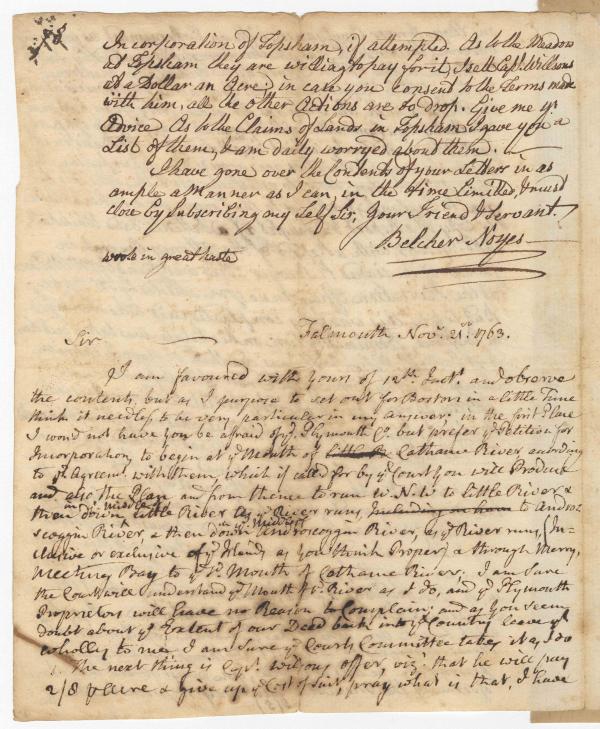 Incorporation of Topsham, if attempted. As to the Meadow
at Topsham they are willing to pay for it, Isett Capt. Willsons
at a Dollar an Acre in case you consent to the Terms made
with him, all the other Actions are to drop. Give me yr
Advice As to the Claims of Lands in Topsham I gave you a
List of them, I am daily worryed about them.
I have gone over the Contents of your Letters in as
ample a Manner as I can, in the time Limitted, & must
close by Subscribing my Self Sir, Your Friend & Servant.
Belcher Noyes
wrote in great haste
Falmouth Novr. 21st. 1763.
Sir
I am favoured with yours of 12th. Inst. and observe
the contents, but as I purpose to set out for Boston in a little Time
think it needless to be very particular in my answer; in the first Place
I would not have you be afraid of ye. Plymouth Co. but prefer ye. Petition for
Incorporation, to begin at ye Mouth of Cathance River according
to ye Agreemt. with them, which if called for by ye Court you will Produce
and also the Plan and from thence to run W. N. W to Little River, &
then in ye Middle down Little River as ye River runs, Including to Andros-
coggin River, & then in ye Middle down Androscoggin River, as ye River runs, (In-
clusive or exclusive of ye Islands as you think Proper) & through Merry,
Meeting Bay to ye Sd. Mouth of Cathance River; I am Sure
the Court will understand ye Mouth of sd. River as I do, and ye Plymouth
Proprietors will have no Reason to Complain; and as you seem
doubt about ye Extent of our Deed back into ye Country leave yt
wholly to me, I am Sure ye Courts Committee takes it as I do
The next thing is Capt. Wilsons offer, viz: that he will pay
2/8 p Acre & give up ye Cost of Suit, pray what is that, I have